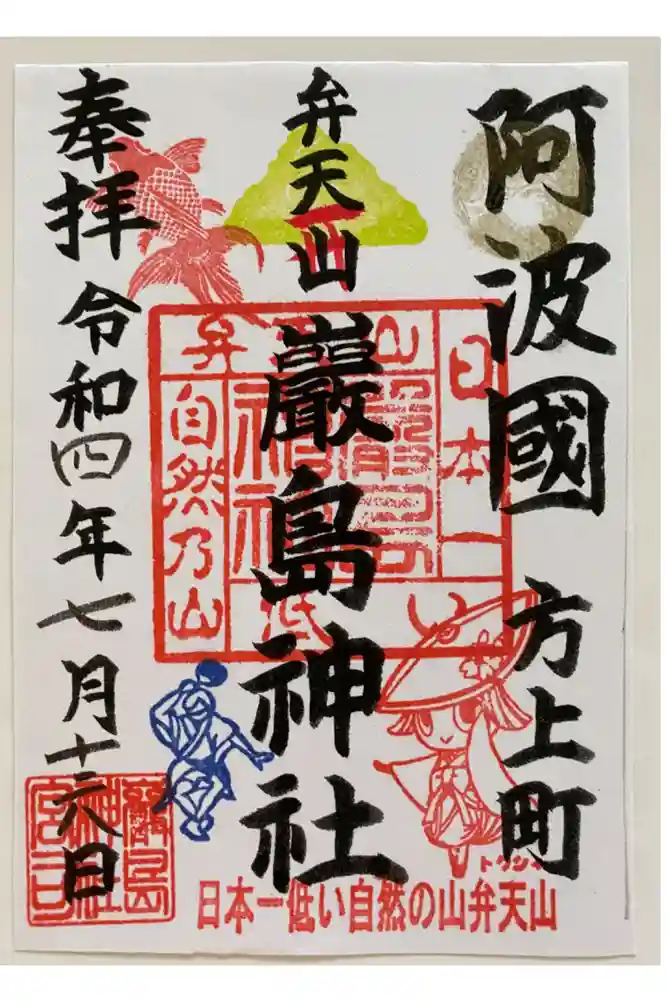 阿波國 方上町
弁天山
巖島神社
奉拝 令和四年七月十六日
日本一
弁天山
自然乃山
低
日本一低い自然の山弁天山